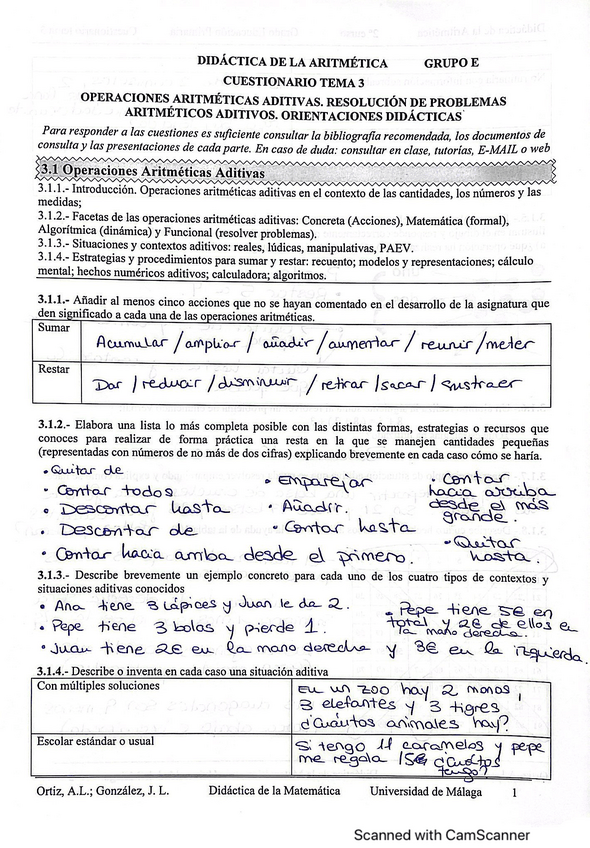 DIDÁCTICA DE LA ARITMÉTICA GRUPO E
CUESTIONARIO TEMA 3
OPERACIONES ARITMÉTICAS ADITIVAS. RESOLUCIÓN DE PROBLEMAS
ARITMÉTICOS ADITIVOS. ORIENTACIONES DIDÁCTICAS
Para responder a las cuestiones es suficiente consultar la bibliografía recomendada, los documentos de
consulta y las presentaciones de cada parte. En caso de duda: consultar en clase, tutorías, E-MAIL o web
3.1 Operaciones Aritméticas Aditivas
3.1.1.- Introducción. Operaciones aritméticas aditivas en el contexto de las cantidades, los números y las
medidas;
3.1.2.- Facetas de las operaciones aritméticas aditivas: Concreta (Acciones), Matemática (formal),
Algorítmica (dinámica) y Funcional (resolver problemas).
3.1.3.- Situaciones y contextos aditivos: reales, lúdicas, manipulativas, PAEV.
3.1.4.- Estrategias y procedimientos para sumar y restar: recuento; modelos y representaciones; cálculo
mental; hechos numéricos aditivos; calculadora; algoritmos.
3.1.1.- Añadir al menos cinco acciones que no se hayan comentado en el desarrollo de la asignatura que
den significado a cada una de las operaciones aritméticas.
Sumar
Acumular / ampliar / añadir / aumentar / reunir / meter
Restar
Dar / reducir / disminuir / retirar / sacar / sustraer
3.1.2.- Elabora una lista lo más completa posible con las distintas formas, estrategias o recursos que
conoces para realizar de forma práctica una resta en la que se manejen cantidades pequeñas
(representadas con números de no más de dos cifras) explicando brevemente en cada caso cómo se haría.
• Quitar de
• Contar todos
• Descontar hasta
• Descontar de
• Contar hacia arriba desde el primero.
• Emparejar
• Añadir.
• Contar hasta
• Contar
hacia arriba
desde el más
grande.
• Quitar
hasta.
3.1.3.- Describe brevemente un ejemplo concreto para cada uno de los cuatro tipos de contextos y
situaciones aditivas conocidos
• Ana tiene 3 lápices y Juan le da 2.
• Pepe tiene 3 bolos y pierde 1.
• Juan tiene 2€ en la mano derecha y 3€ en la izquierda.
• Pepe tiene 5€ en
total y 2€ de ellos en
la mano derecha.
3.1.4.- Describe o inventa en cada caso una situación aditiva
Con múltiples soluciones
En un zoo hay 2 monos,
3 elefantes y 3 tigres
¿Cuántos animales hay?
Escolar estándar o usual
Si tengo 11 caramelos y pepe
me regala 15 ¿Cuántos
tengo?
Ortiz, A.L.; González, J. L. Didáctica de la Matemática Universidad de Málaga 1
Scanned with CamScanner